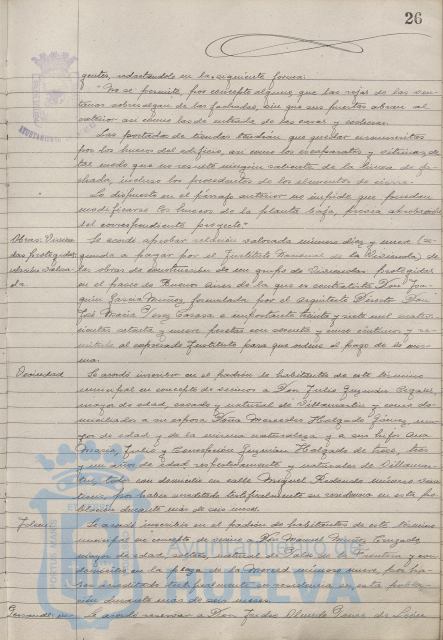 26
gentes, redactándolo en la siguiente forma:
"No se permite, por concepto alguno, que las rejas de las ven-
tanas sobresalgan de las fachadas, sin que sus puertas abran al
exterior así como las de entrada de las casas y cocheras.
Las portadas de tiendas tendrán que quedar circunscritas
por los huecos del edificio, así como los escaparates y vitrinas, de
tal modo que no resulte ningún saliente de la línea de fa-
chada, incluso los procedentes de los elementos de cierre.
Lo dispuesto en el párrafo anterior no impide que puedan
modificarse los huecos de la planta baja, previa aprobación
del correspondiente proyecto."
Obras. Vivien-
das protegidas
Se acordó aprobar relación valorada número diez y nueve (se-
gunda a pagar por el Instituto Nacional de la Vivienda) de
las obras de construcción de un grupo de Viviendas protegidas
en el paseo de Buenos Aires de la que es contratista Don Joa-
quín García Muñoz formulada por el arquitecto Director Don
José María Pérez Carasa e importante treinta y siete mil cuatro-
cientas setenta y nueve pesetas con sesenta y once céntimos y re-
mitirla al expresado Instituto para que ordene el pago de la mis-
ma.
Vecindad
Se acordó inscribir en el padrón de habitantes de este término
municipal en concepto de vecinos a Don Julio Guzmán
mayor de edad, casado y natural de Villamartín y como do-
miciliados a su esposa Doña Mercedes Holgado Gómez, ma-
yor de edad y de la misma naturaleza y a sus hijos Ana
María, Julio y Concepción Guzmán Holgado de tres,
y un años de edad respectivamente y naturales de Villamar-
tín, todos con domicilio en calle Miguel Redondo número
por haber acreditado testificalmente su residencia en esta po-
blación durante más de seis meses.
Idem
Se acordó inscribir en el padrón de habitantes de este término
municipal en concepto de vecino a Don Manuel Muñoz
mayor de edad, soltero, natural de de la Frontera y con
domicilio en la plaza de la Merced número nueve, por ha-
ber acreditado testificalmente su residencia en esta pobla-
ción durante más de seis meses.
Se acordó reservar a Don
AYUNTAMIENTO DE
HUELVA
PORTUS MARIS